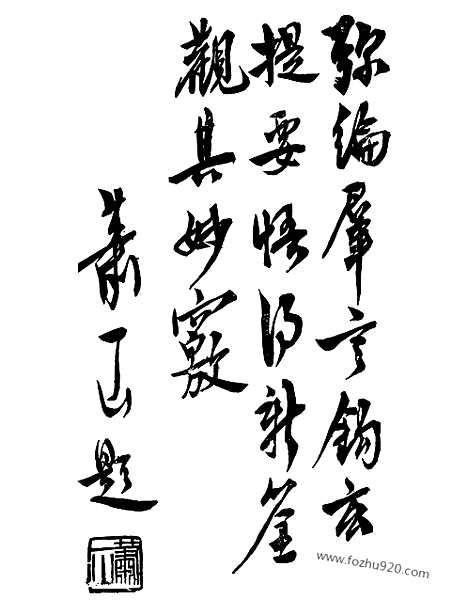 弥綸羣言鉤玄
提要悟得新筌
觀其妙竅
蕭一山題
www.fozhu920.com